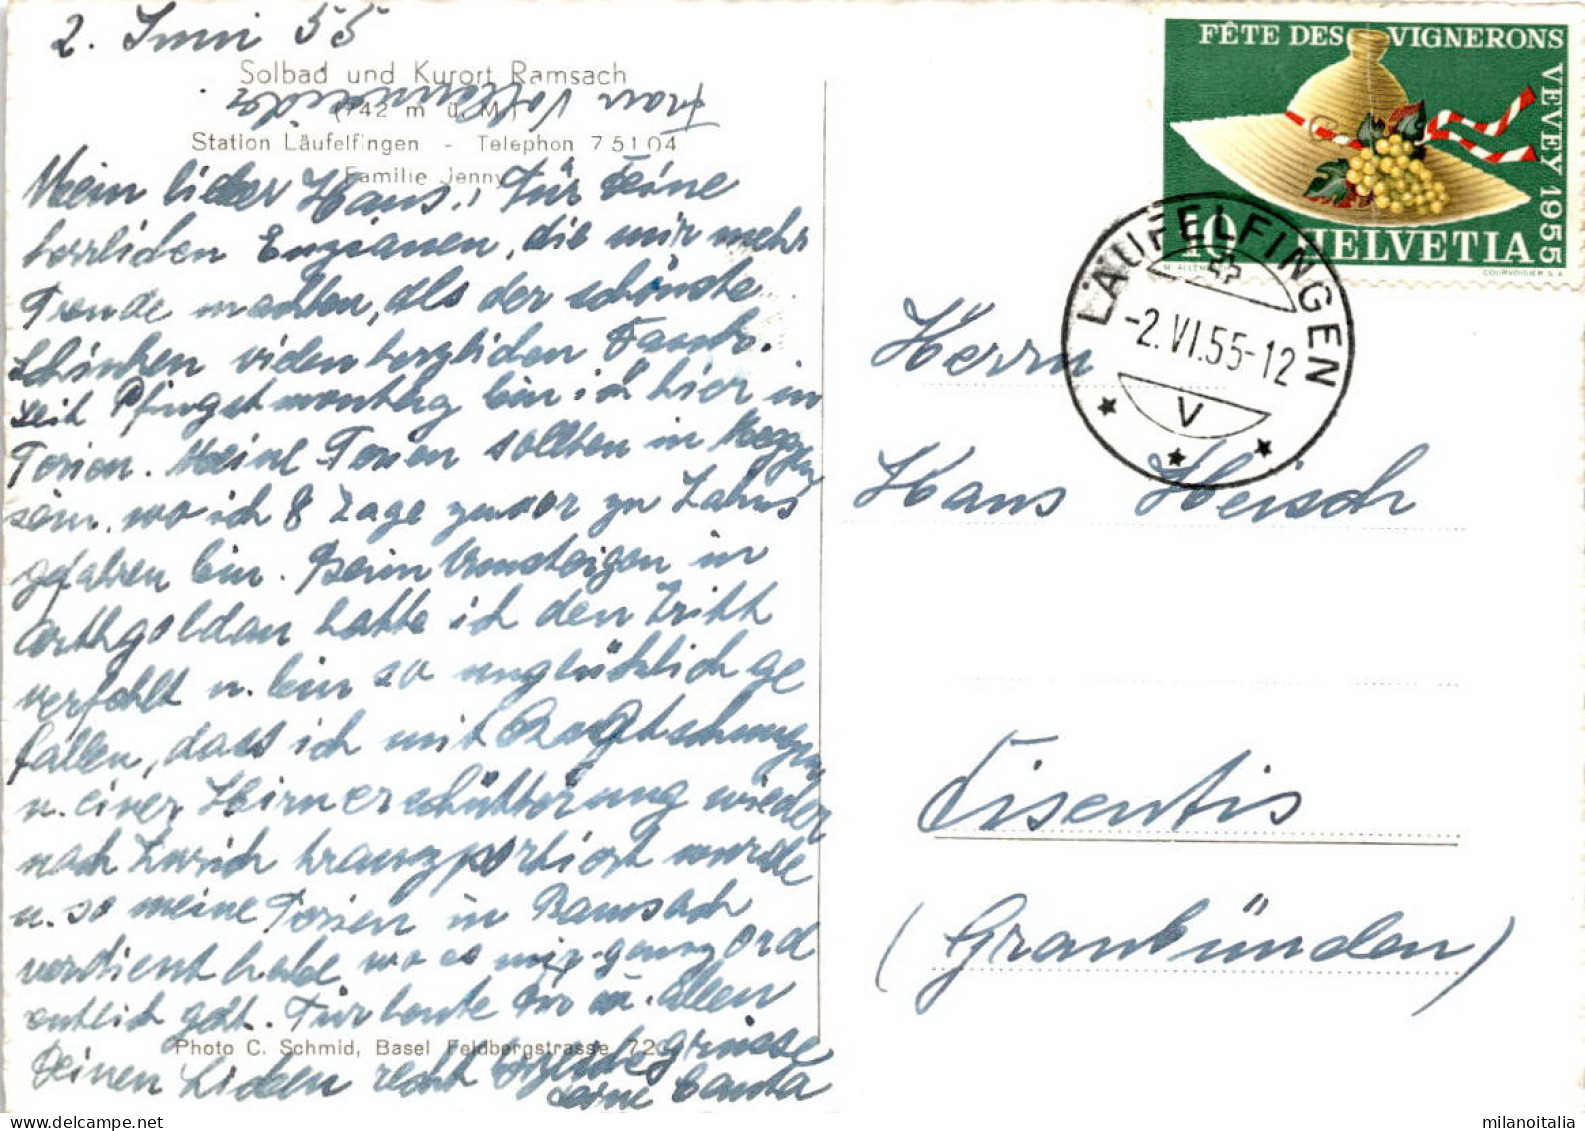 2. Juni 55
Solbad und Kurort Ramsach
(742 m ü. M.)
Station Läufelfingen - Telephon 7 51 04
Familie Jenny
Frau
Mein lieber Hans, Für Deine
herrlichen Enzianen, die mir mehr
Freude machten, als der schönste
Schinken vielen herzlichen Dank.
Seit Pfingstmontag bin ich hier in
Ferien. Meine Ferien sollten in Meggen
sein, wo ich 8 Tage zuvor zu
gefahren bin. Beim Umsteigen in
Arthgoldau hatte ich den Tritt
verfehlt u. bin so unglücklich ge
fallen, dass ich mit
u. einer Hirnerschütterung wieder
nach Zürich transportiert wurde
u. so meine Ferien in Ramsach
verdient habe wo es mir ganz ord
entlich geht. Für heute Dir u. allen
Deinen Lieben recht herzliche Grüsse
Deine
Photo C. Schmid, Basel Feldbergstrasse 72
FÊTE DES VIGNERONS
VEVEY 1955
10 HELVETIA
COURVOISIER S.A.
LÄUFELFINGEN
-2.VI.55-12
V
Herrn
Hans Heisch
Disentis
(Graubünden)
milanoitalia